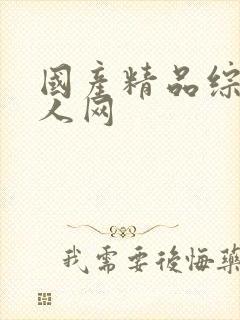 國產精品综
人网
我需要後悔藥